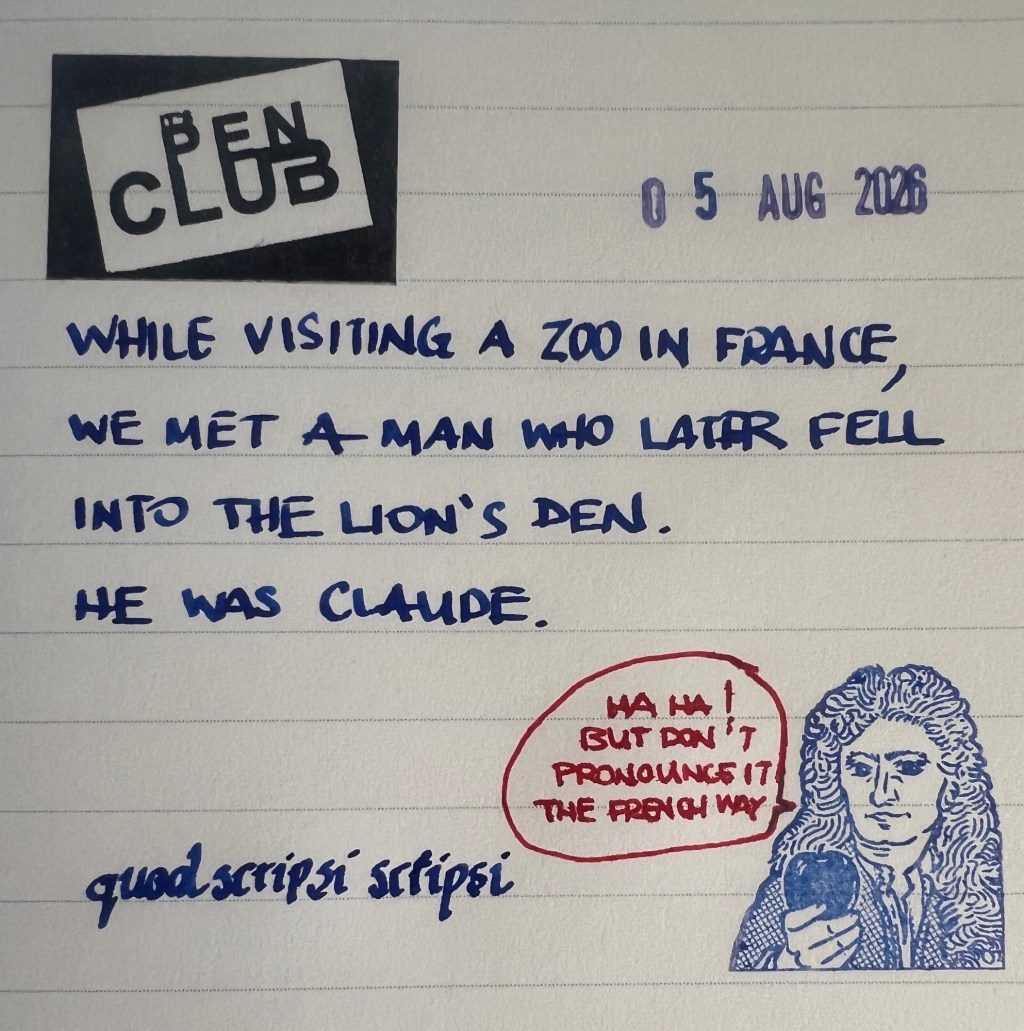 PEN
CLUB
05 AUG 2026
WHILE VISITING A ZOO IN FRANCE,
WE MET A MAN WHO LATER FELL
INTO THE LION'S DEN.
HE WAS CLAUDE.
HA HA!
BUT DON'T
PRONOUNCE IT
THE FRENCH WAY
quod scripsi scripsi